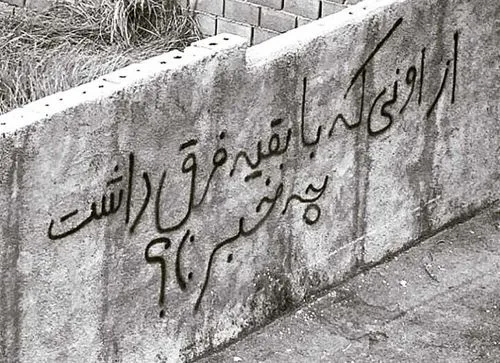 از اونی که با بقیه فرق داشت
چه خبر ؟!